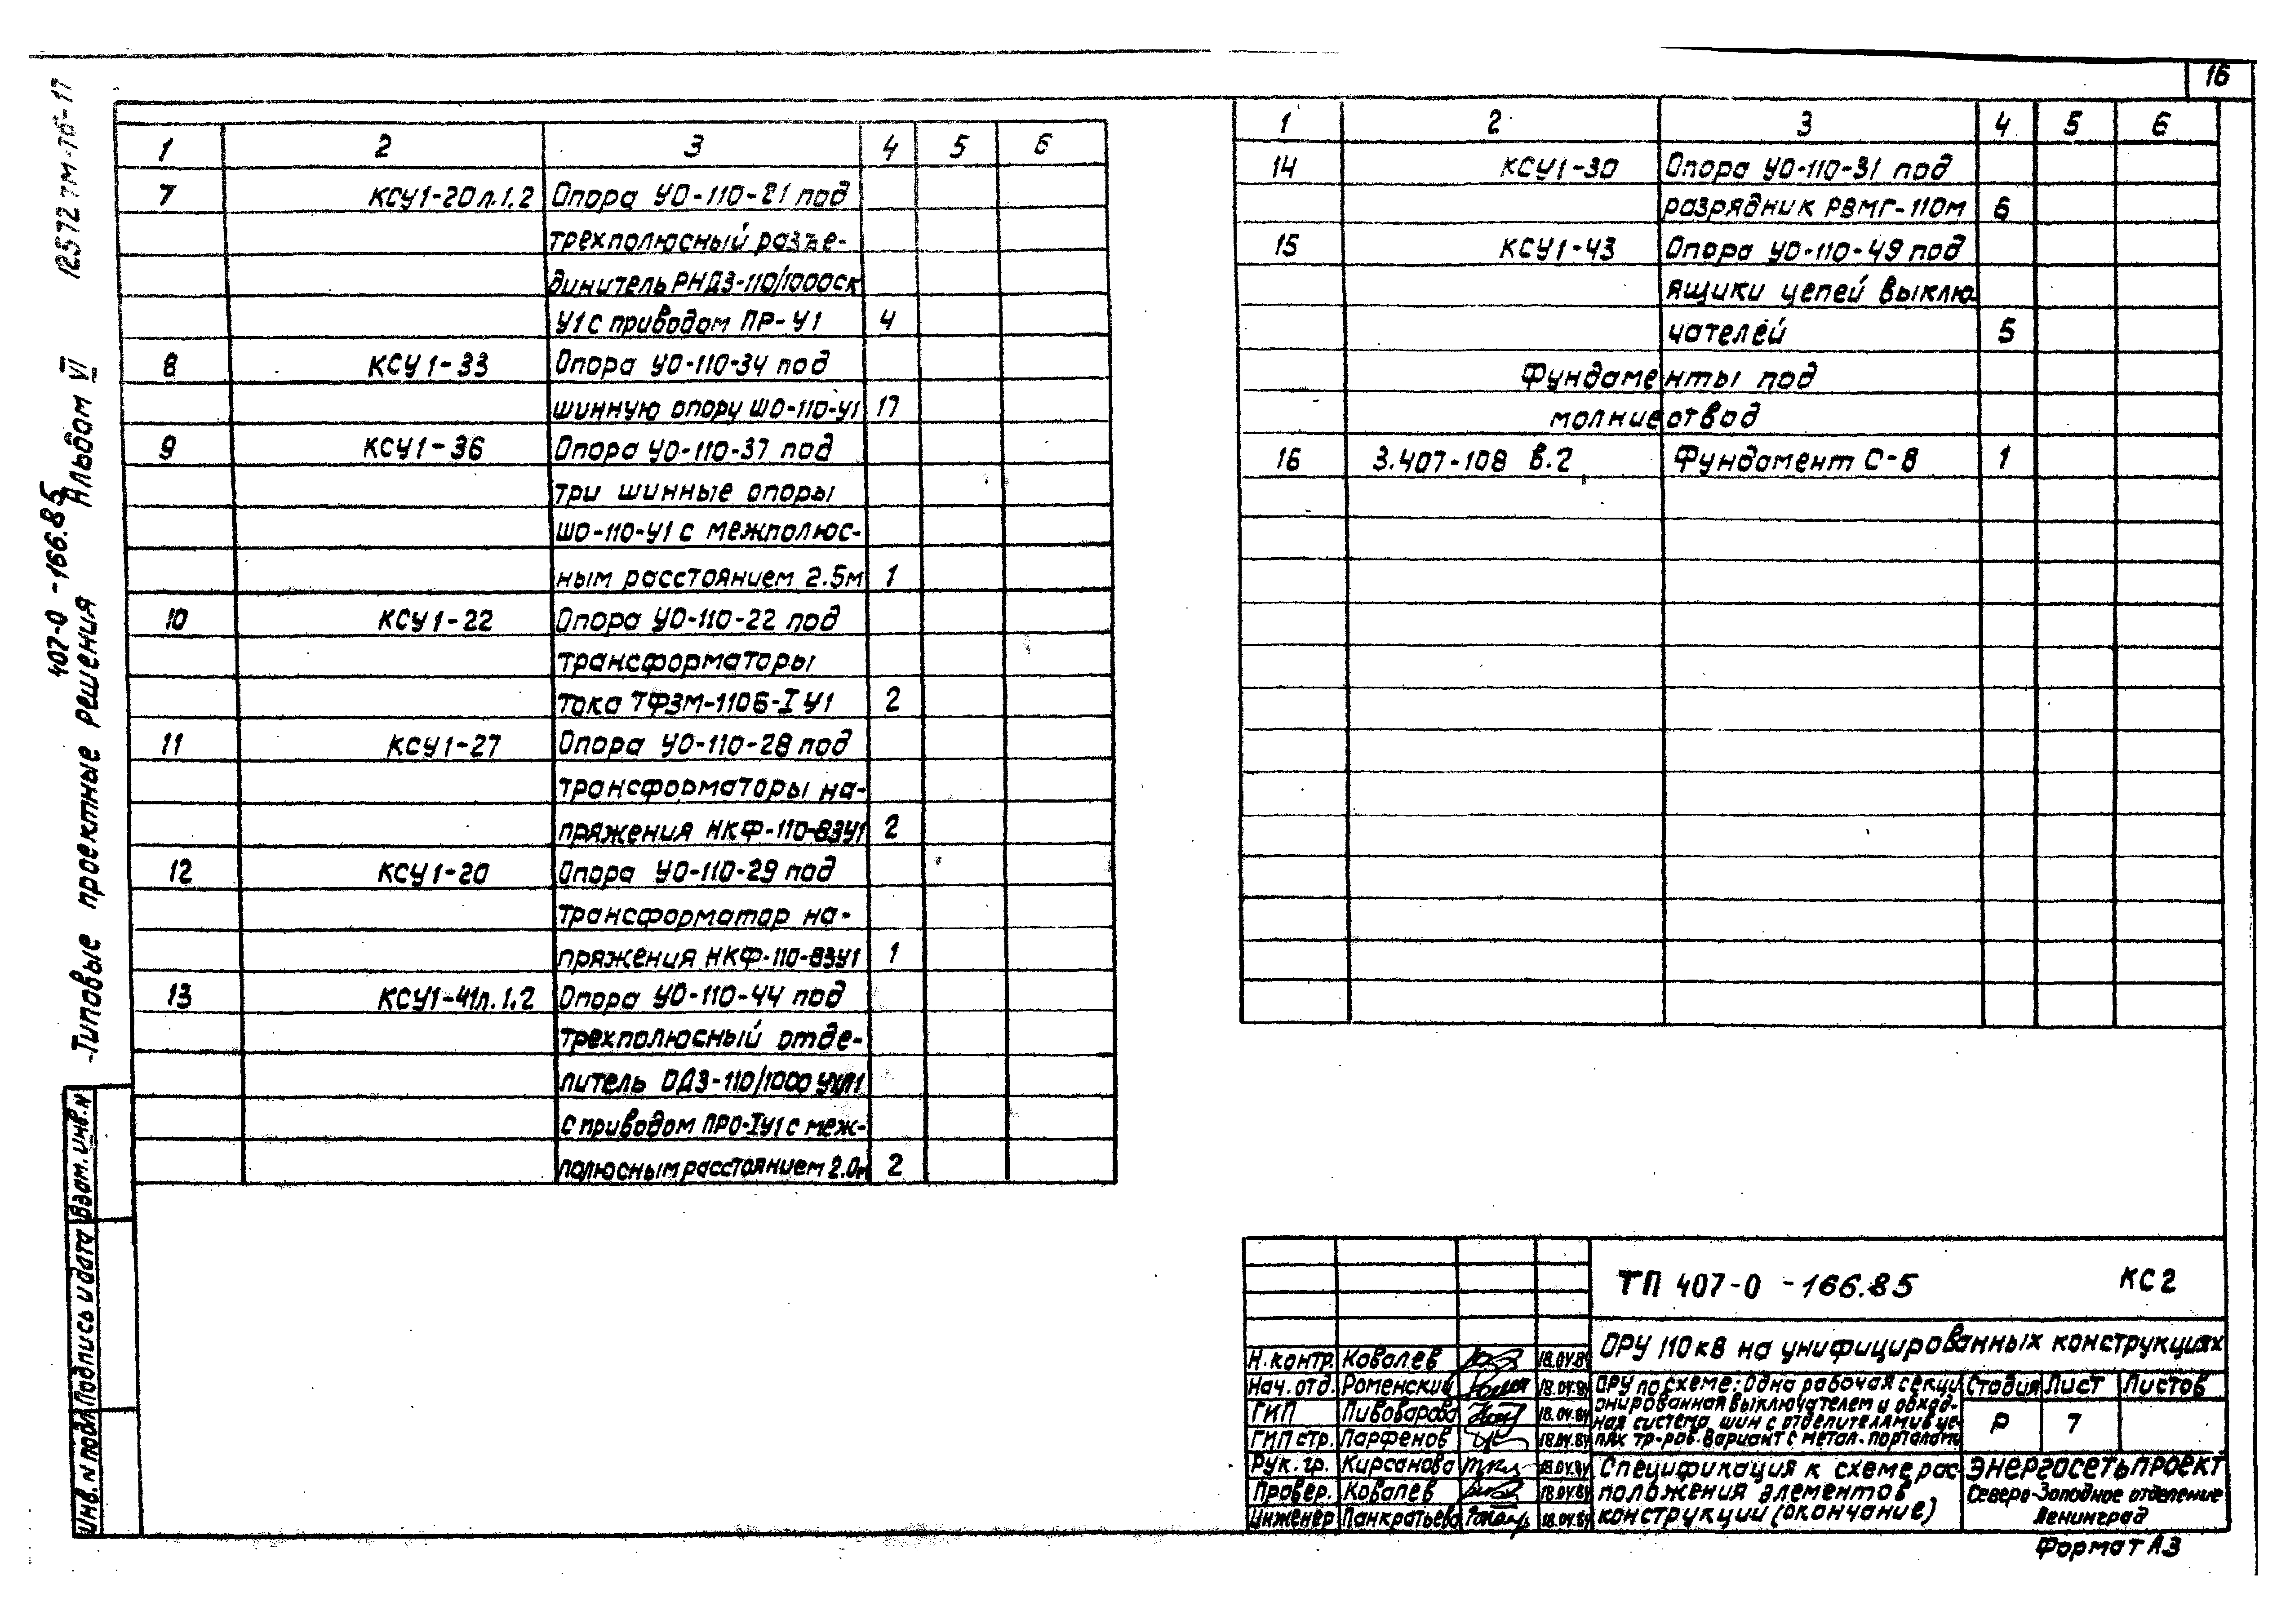 16
12572тм-т6-17
407-0 -166.85
Типовые проектные решения Альбом VI
Взам. инв. N
Подпись и дата
Инв. N подл
1 2 3 4 5 6
7 КСУ1-20 л.1,2 Опора УО-110-21 под
трехполюсный разъе-
динитель РНДЗ-110/1000СК
У1 с приводом ПР-У1 4
8 КСУ1-33 Опора УО-110-34 под
шинную опору ШО-110-У1 17
9 КСУ1-36 Опора УО-110-37 под
три шинные опоры
ШО-110-У1 с межполюс-
ным расстоянием 2.5м 1
10 КСУ1-22 Опора УО-110-22 под
трансформаторы
тока ТФЗМ-110Б-I У1 2
11 КСУ1-27 Опора УО-110-28 под
трансформаторы на-
пряжения НКФ-110-83У1 2
12 КСУ1-20 Опора УО-110-29 под
трансформатор на-
пряжения НКФ-110-83У1 1
13 КСУ1-41л.1,2 Опора УО-110-44 под
трехполюсный отде-
литель ОДЗ-110/1000 УХЛ1
с приводом ПРО-IУ1 с меж-
полюсным расстоянием 2.0м 2
1 2 3 4 5 6
14 КСУ1-30 Опора УО-110-31 под
разрядник РВМГ-110м 6
15 КСУ1-43 Опора УО-110-49 под
ящики цепей выклю-
чателей 5
Фундаменты под
молниеотвод
16 3.407-108 в.2 Фундамент С-8 1
ТП 407-0 -166.85 КС2
ОРУ 110кВ на унифицированных конструкциях
Н.контр. Ковалев 18.04.84
Нач.отд. Роменский 18.04.84
ГИП Пивоварова 18.04.84
ГИП стр. Парфенов 18.04.84
Рук.гр. Кирсанова 18.04.84
Провер. Ковалев 18.04.84
Инженер Панкратьева 18.04.84
ОРУ по схеме: Одна рабочая секци
онированная выключателем и обход-
ная система шин с отделителями в це-
пях тр-ров. Вариант с метал. порталами
Стадия Лист Листов
Р 7
Спецификация к схеме рас
положения элементов
конструкций (окончание)
ЭНЕРГОСЕТЬПРОЕКТ
Северо-Западное отделение
Ленинград
Формат А3